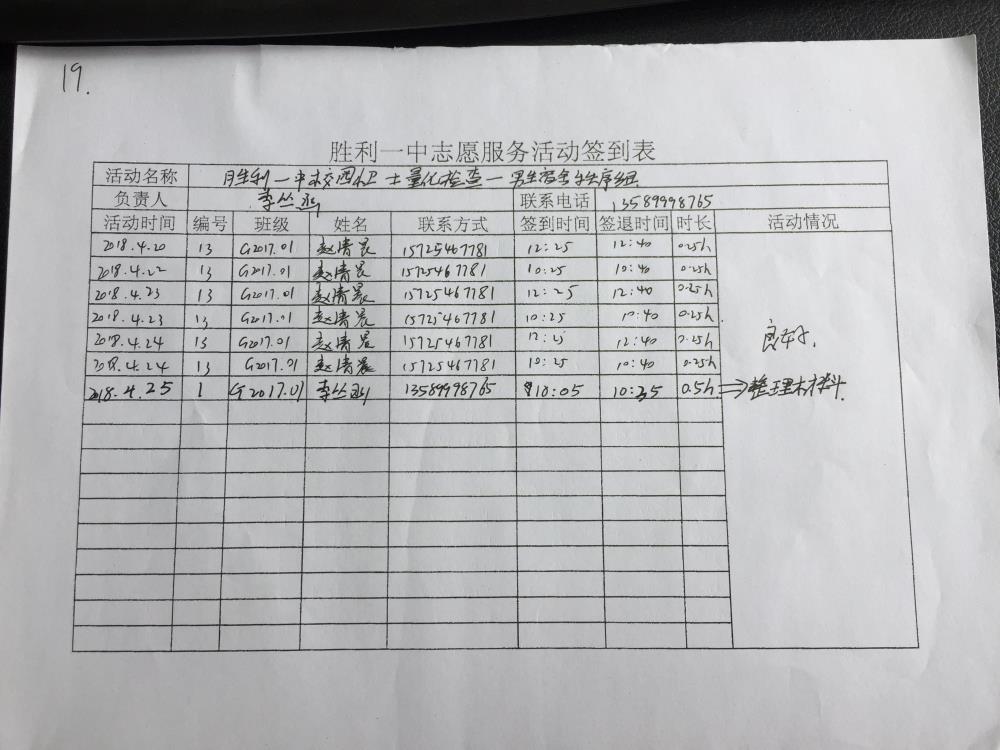 19.
胜利一中志愿服务活动签到表
活动名称 胜利一中校园卫士量化检查一男生宿舍秩序组
负责人 李丛 联系电话 13589998765
活动时间 编号 班级 姓名 联系方式 签到时间 签退时间 时长 活动情况
2018.4.20 13 G2017.01 赵清晨 15725467781 12:25 12:40 0.25h
2018.4.22 13 G2017.01 赵清晨 15725467781 10:25 10:40 0.25h
2018.4.23 13 G2017.01 赵清晨 15725467781 12:25 12:40 0.25h
2018.4.23 13 G2017.01 赵清晨 15725467781 10:25 10:40 0.25h
良好.
2018.4.24 13 G2017.01 赵清晨 15725467781 12:25 12:40 0.25h
2018.4.24 13 G2017.01 赵清晨 15725467781 10:25 10:40 0.25h
2018.4.25 1 G2017.01 李丛 13589998765 10:05 10:35 0.5h ⇒整理材料.